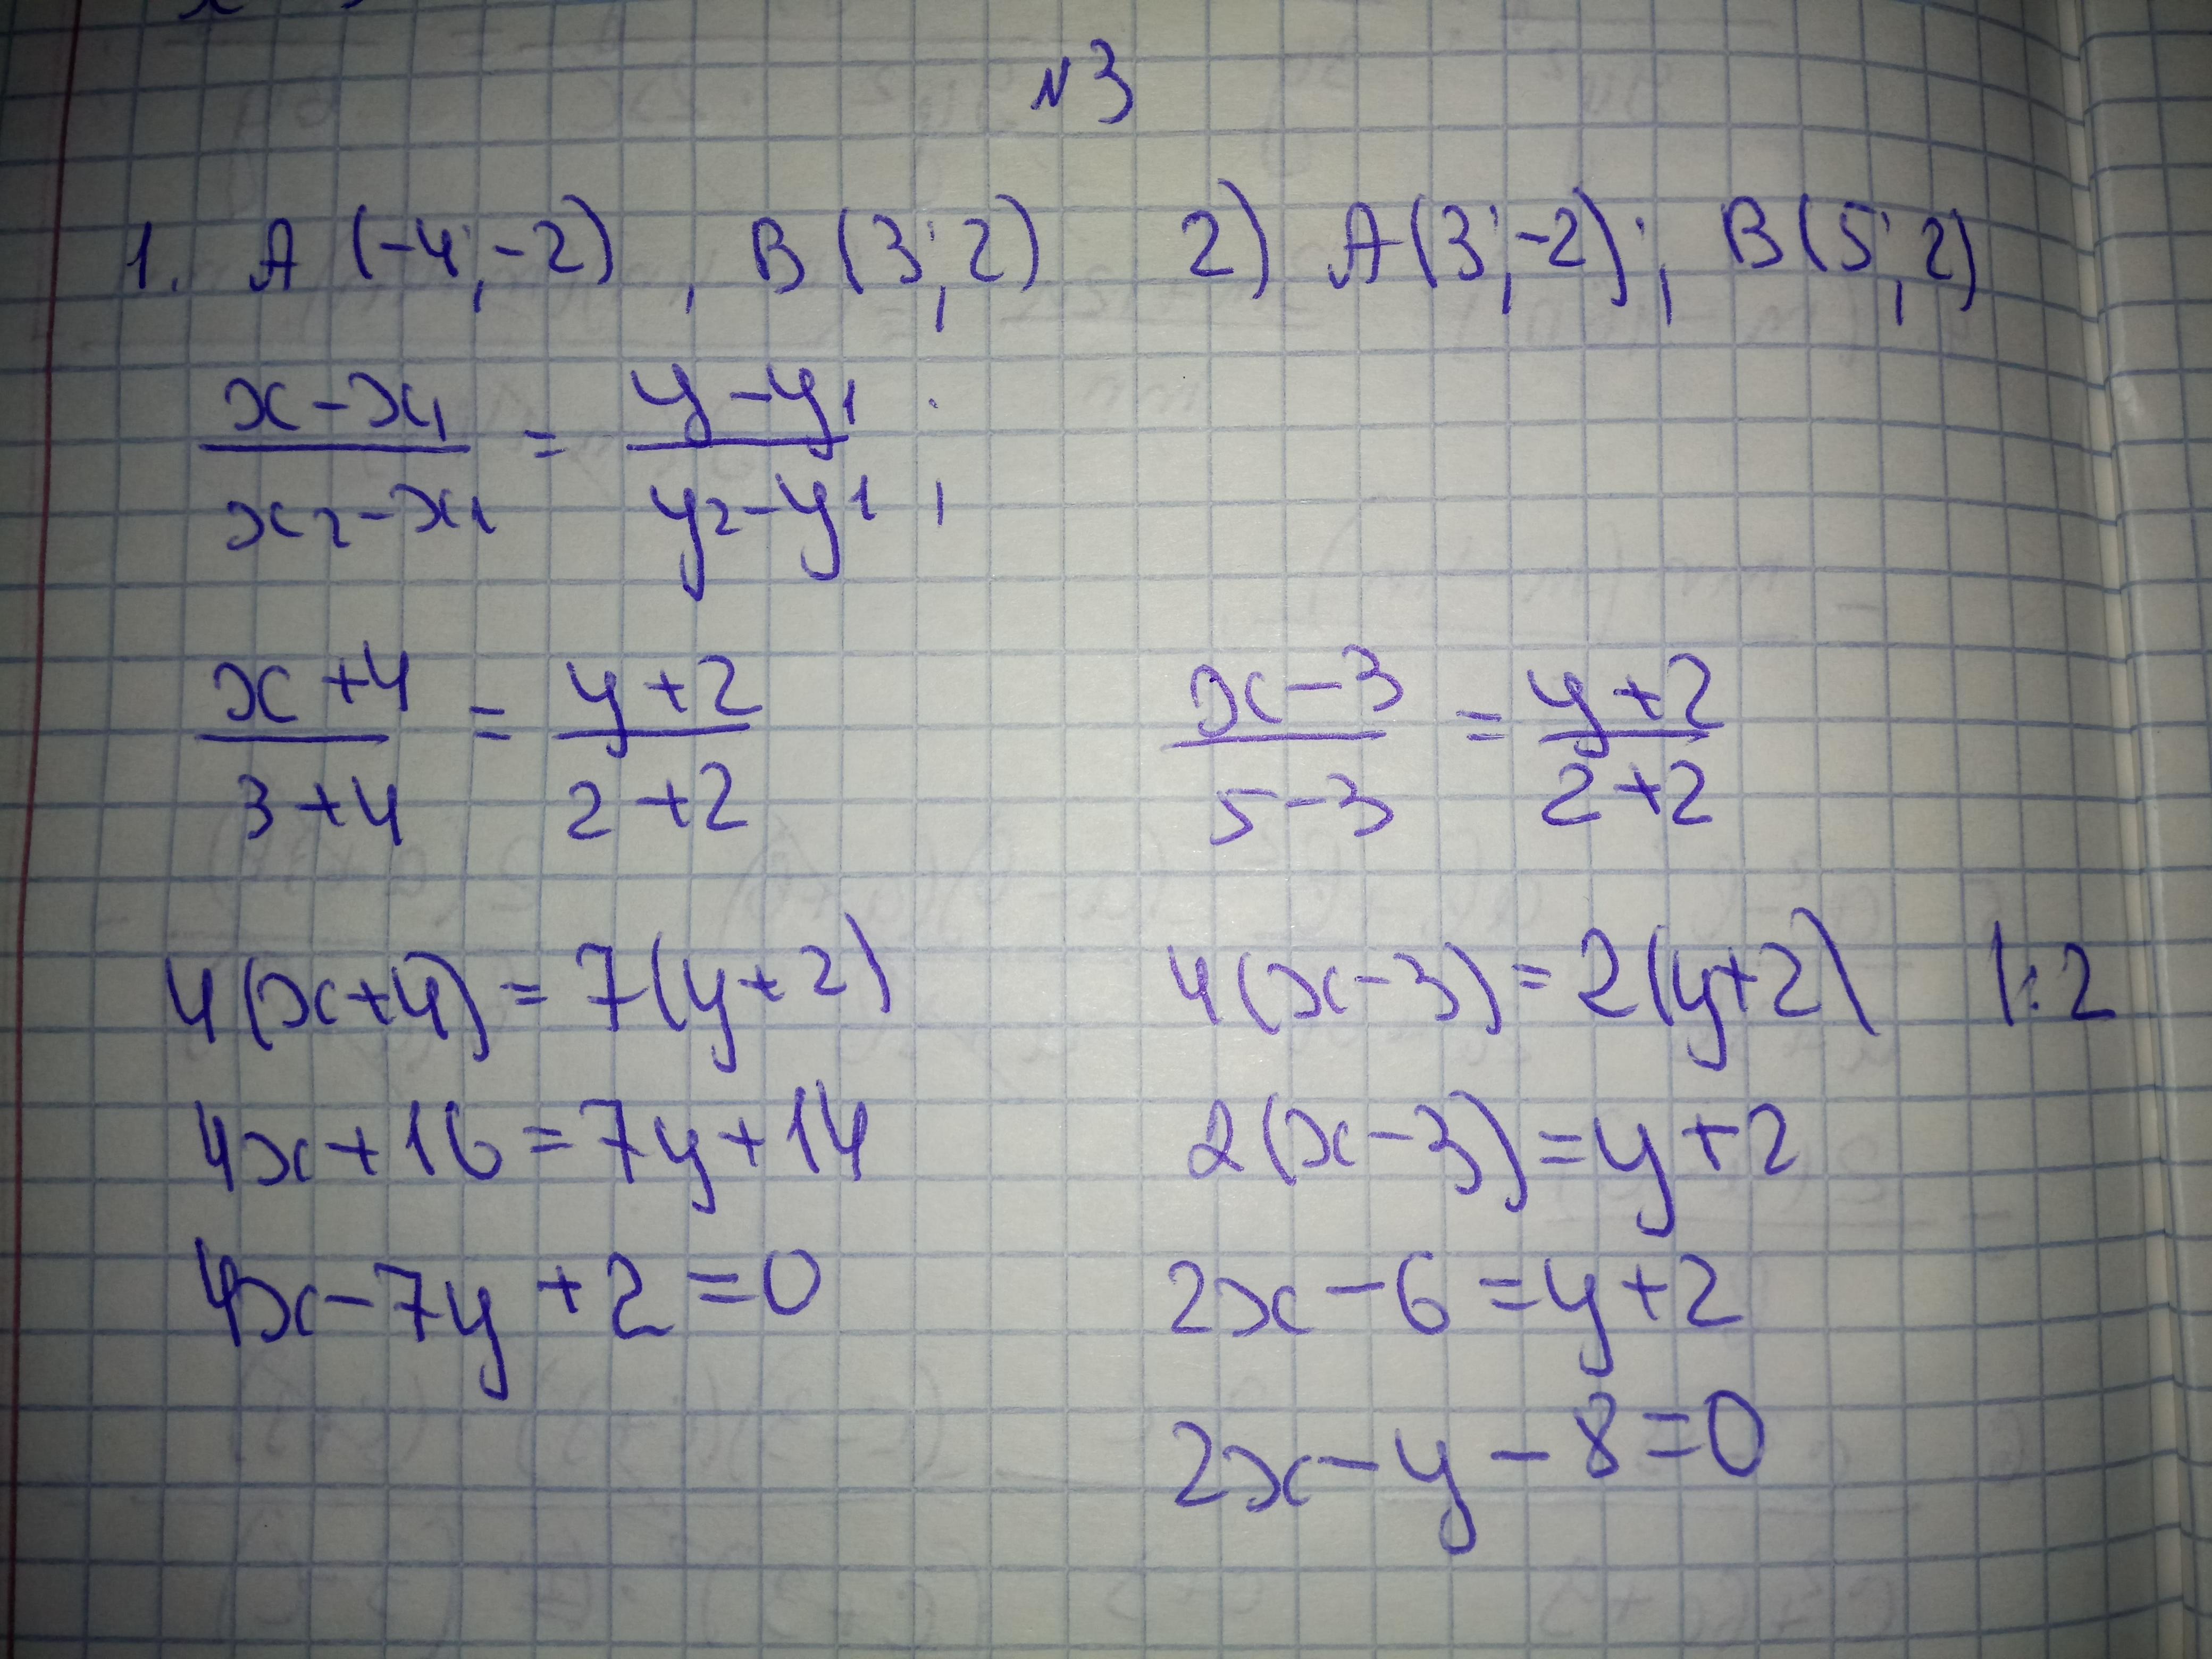 №3
1. A (-4; -2), B (3; 2) 2) A(3; -2); B(5; 2)
(x-x₁)/(x₂-x₁) = (y-y₁)/(y₂-y₁);
(x+4)/(3+4) = (y+2)/(2+2) (x-3)/(5-3) = (y+2)/(2+2)
4(x+4)=7(y+2) 4(x-3)=2(y+2) |:2
4x+16=7y+14 2(x-3)=y+2
4x-7y+2=0 2x-6=y+2
2x-y-8=0